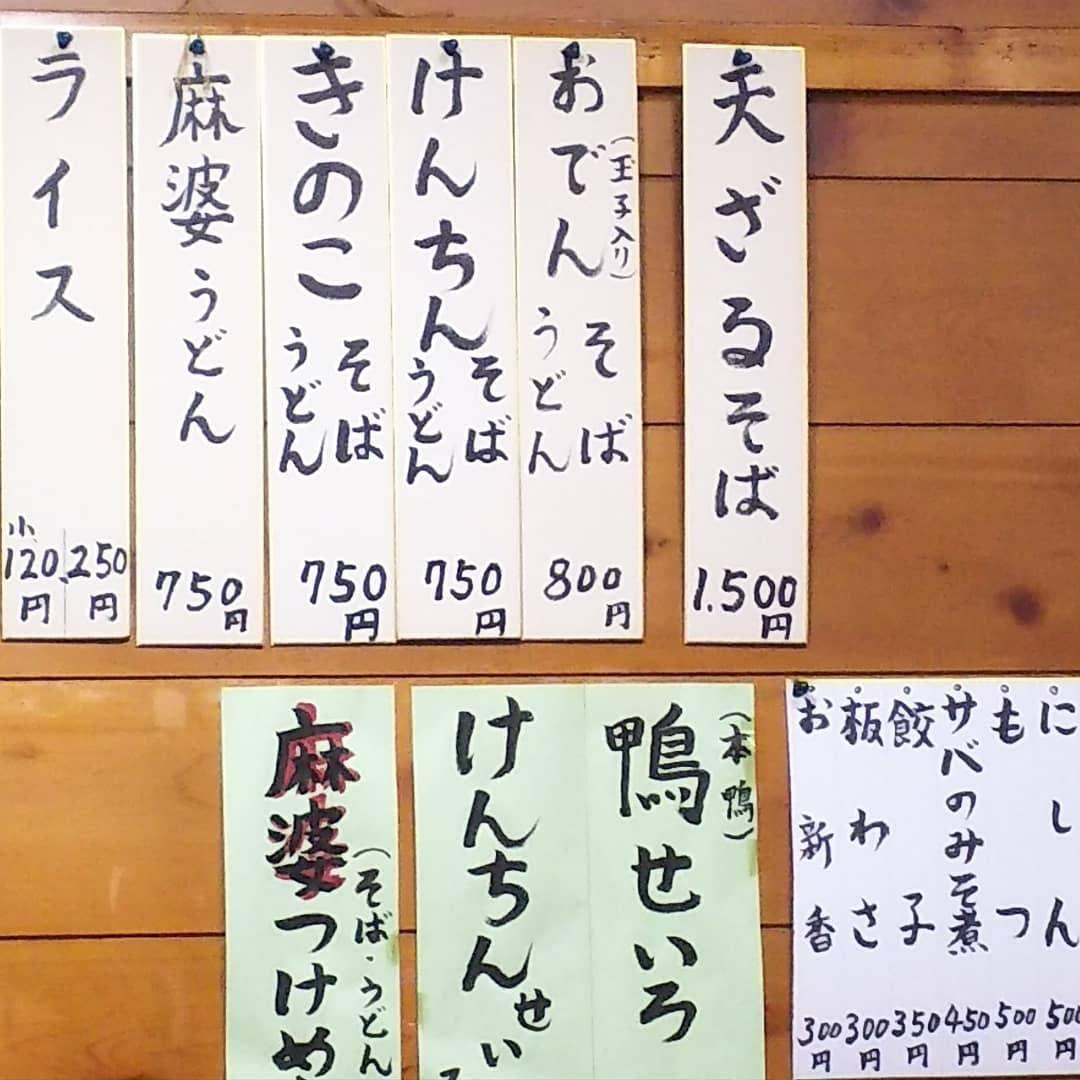 天ざるそば
1.500円
おでん
(玉子入り)
そば
うどん
800円
けんちん
そば
うどん
750円
きのこ
そば
うどん
750円
麻婆うどん
750円
ライス
250円
小
120円
にしん 500
円
もつ 500円
サバのみそ煮 450円
餃子 350円
板わさ 300円
お新香 300円
(本鴨)
鴨せいろ
けんちんせい
(そば・うどん
麻婆つけめ